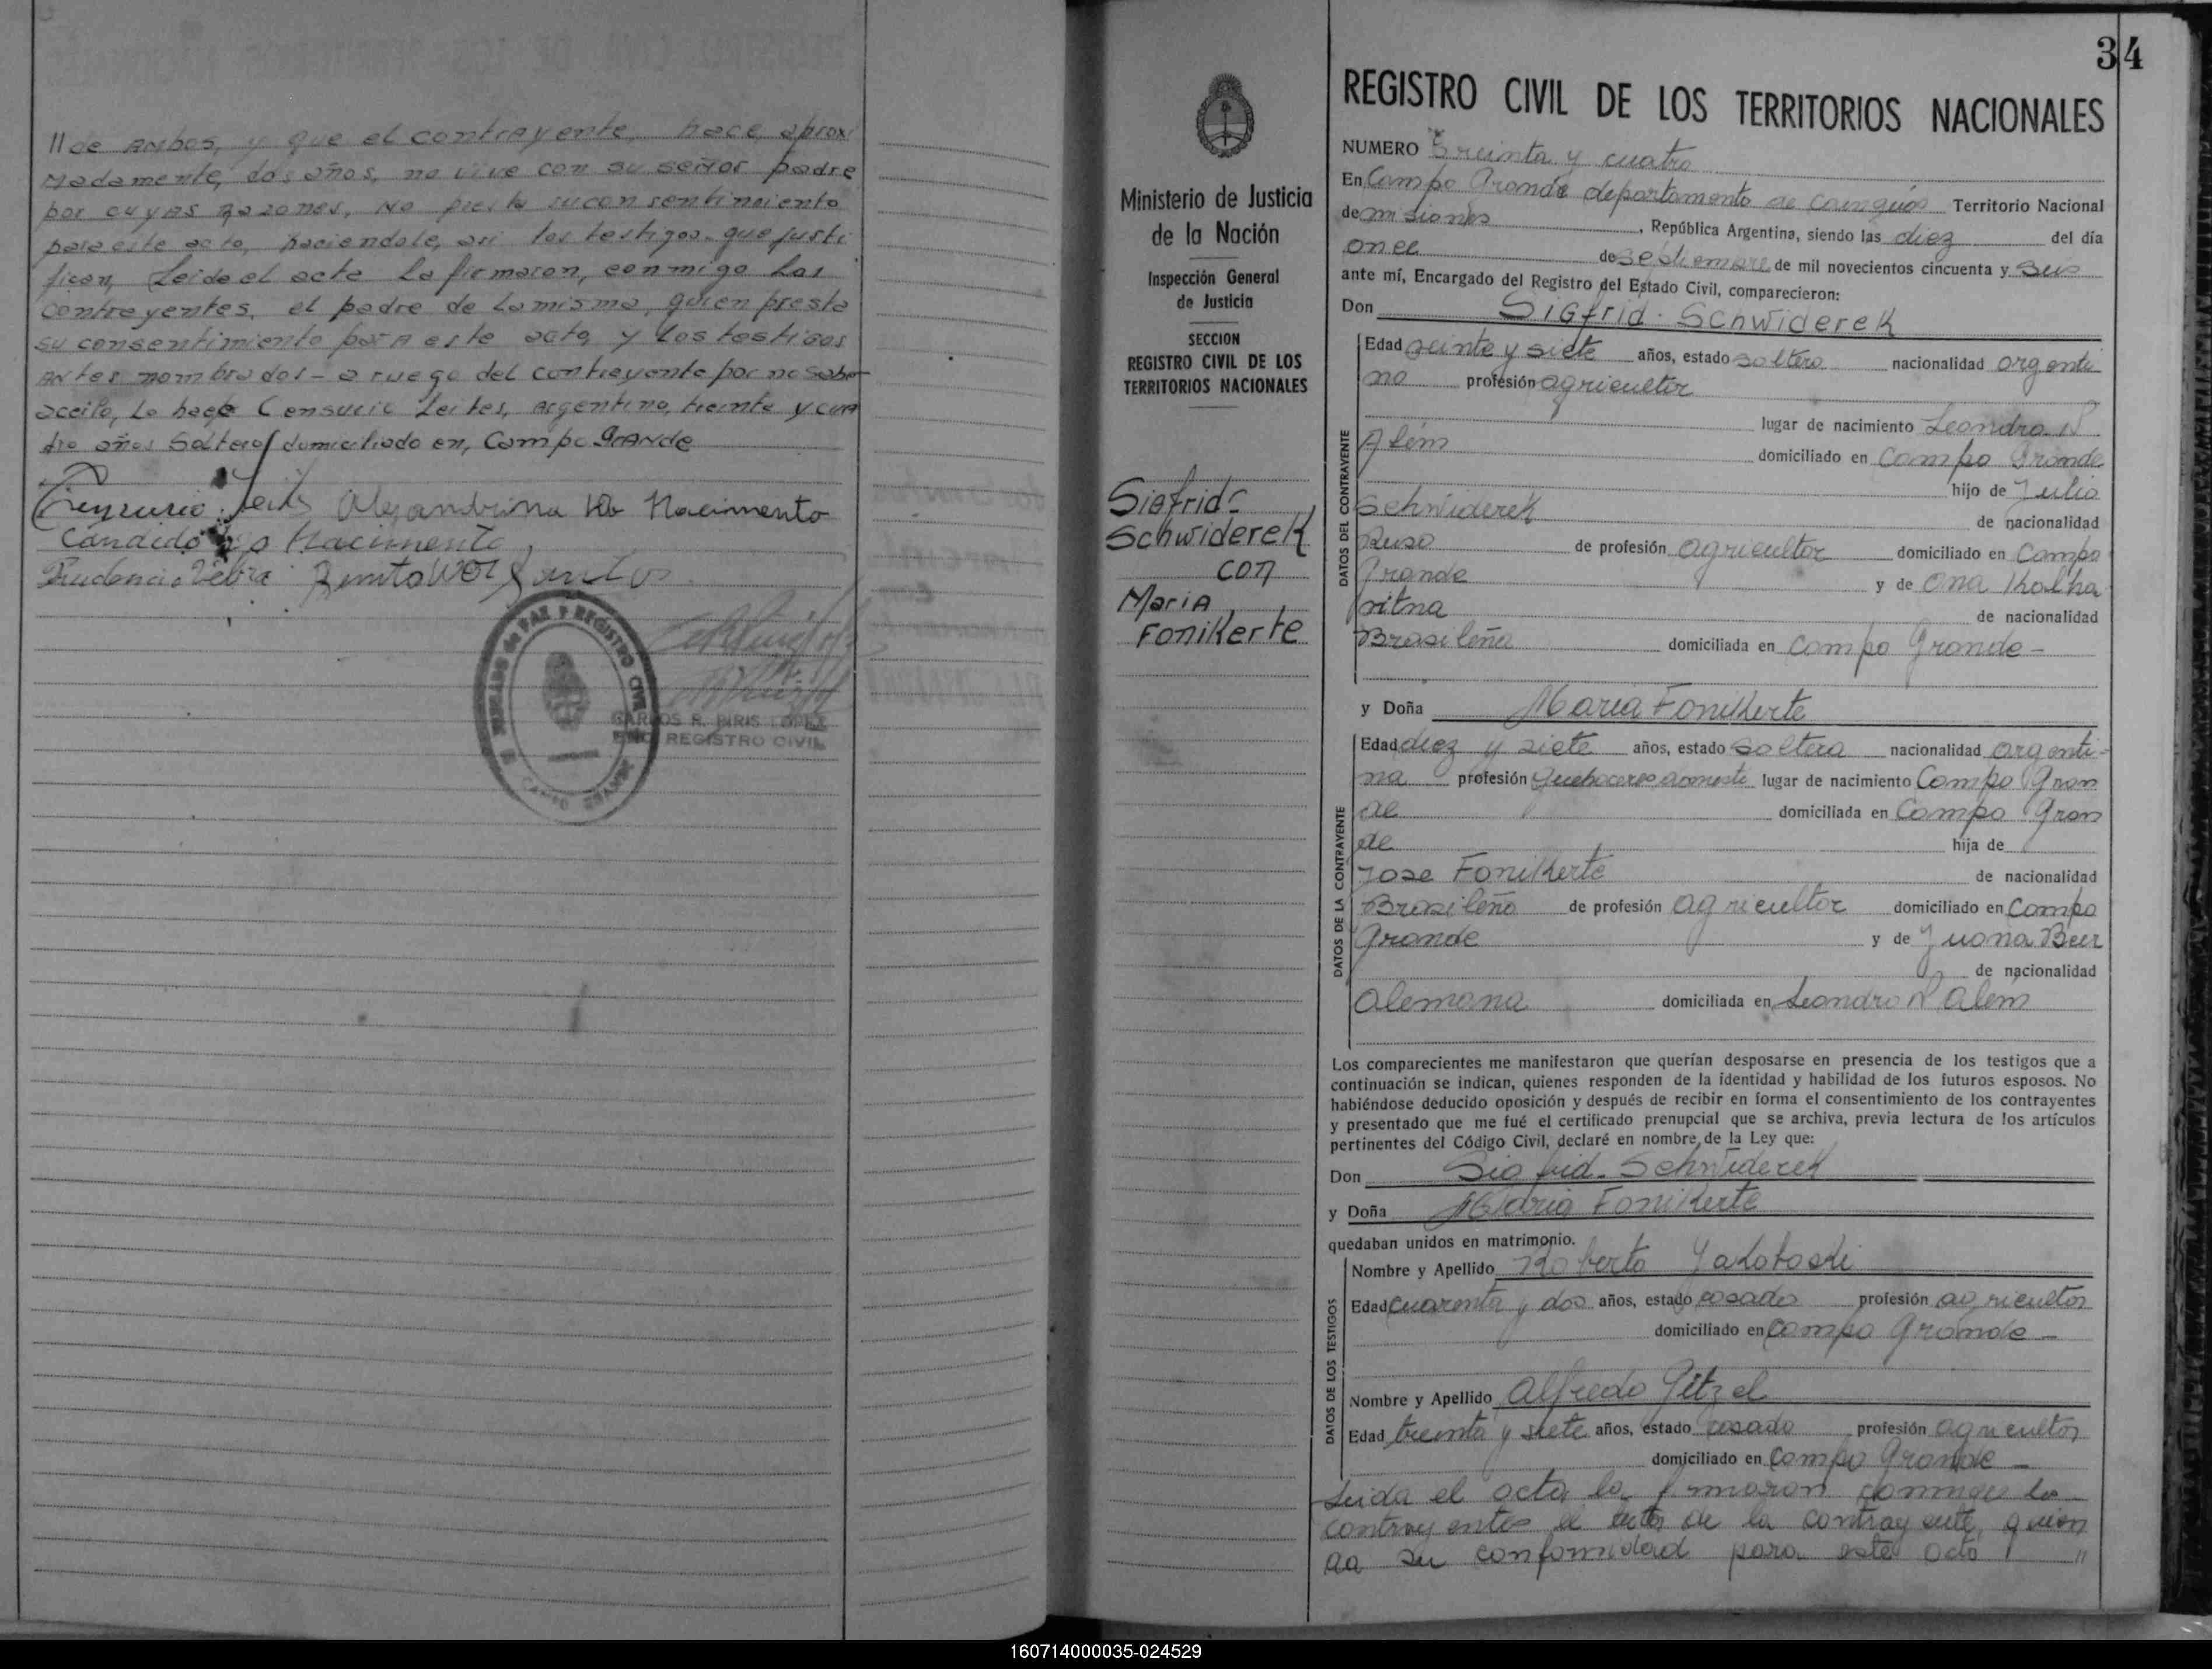 // de Ambos, y que el contrayente, hace, aproxi
madamente, dos años, no vive con su señor padre
por cuyas razones, No presta su consentimiento
para este acto, haciendole, asi los testigos que justi
fican, Leido el acta La firmaron, conmigo Los
contrayentes, el padre de La misma, quien presta
su consentimiento para este acto, y Los testigos
antes nombrados - a ruego del contrayente por no saber
acerlo, Lo hace Censurio Leites, argentino, treinta y cua
tro años Soltero domiciliado en, Campo Grande
Censurio Leites Alejandrina do Nacimento
Candido do Nacimento
JUZGADO de PAZ y REGISTRO CIVIL
CAMPO GRANDE
CARLOS R. PIRIS LOPEZ
ENC. REGISTRO CIVIL
34
Ministerio de Justicia
de la Nación
Inspección General
de Justicia
SECCION
REGISTRO CIVIL DE LOS
TERRITORIOS NACIONALES
Sigfrid-
Schwiderek
con
Maria
Fonikerte
REGISTRO CIVIL DE LOS TERRITORIOS NACIONALES
NUMERO Treinta y cuatro
En Campo Grande departamento de Cainguás Territorio Nacional
de Misiones, República Argentina, siendo las diez del día
once de septiembre de mil novecientos cincuenta y seis
ante mí, Encargado del Registro del Estado Civil, comparecieron:
Don Sigfrid - Schwiderek
DATOS DEL CONTRAYENTE
Edad veinte y siete años, estado soltero nacionalidad argenti
no profesión agricultor
lugar de nacimiento Leandro N
Além domiciliado en Campo Grande
hijo de Julio
Schwiderek de nacionalidad
Ruso de profesión agricultor domiciliado en Campo
Grande y de Ana Katha
ritna de nacionalidad
Brasileña domiciliada en Campo Grande -
y Doña Maria Fonikerte
DATOS DE LA CONTRAYENTE
Edad diez y siete años, estado soltera nacionalidad argenti-
na profesión quehaceres domesti lugar de nacimiento Campo Gran
de domiciliada en Campo Gran
de hija de
Jose Fonikerte de nacionalidad
Brasileño de profesión agricultor domiciliado en Campo
Grande y de Juana Beer
de nacionalidad
Alemana domiciliada en Leandro N Além
Los comparecientes me manifestaron que querían desposarse en presencia de los testigos que a
continuación se indican, quienes responden de la identidad y habilidad de los futuros esposos. No
habiéndose deducido oposición y después de recibir en forma el consentimiento de los contrayentes
y presentado que me fué el certificado prenupcial que se archiva, previa lectura de los artículos
pertinentes del Código Civil, declaré en nombre de la Ley que:
Don Sigfrid - Schwiderek
y Doña Maria Fonikerte
quedaban unidos en matrimonio.
DATOS DE LOS TESTIGOS
Nombre y Apellido Roberto Yakoboski
Edad cuarenta y dos años, estado casado profesión agricultor
domiciliado en Campo Grande -
Nombre y Apellido Alfredo Pitzel
Edad treinta y siete años, estado casado profesión agricultor
domiciliado en Campo Grande -
Leida el acta la firmaron conmigo los
contrayentes el de la contrayente, quien
da su conformidad para este acto //
160714000035-024529